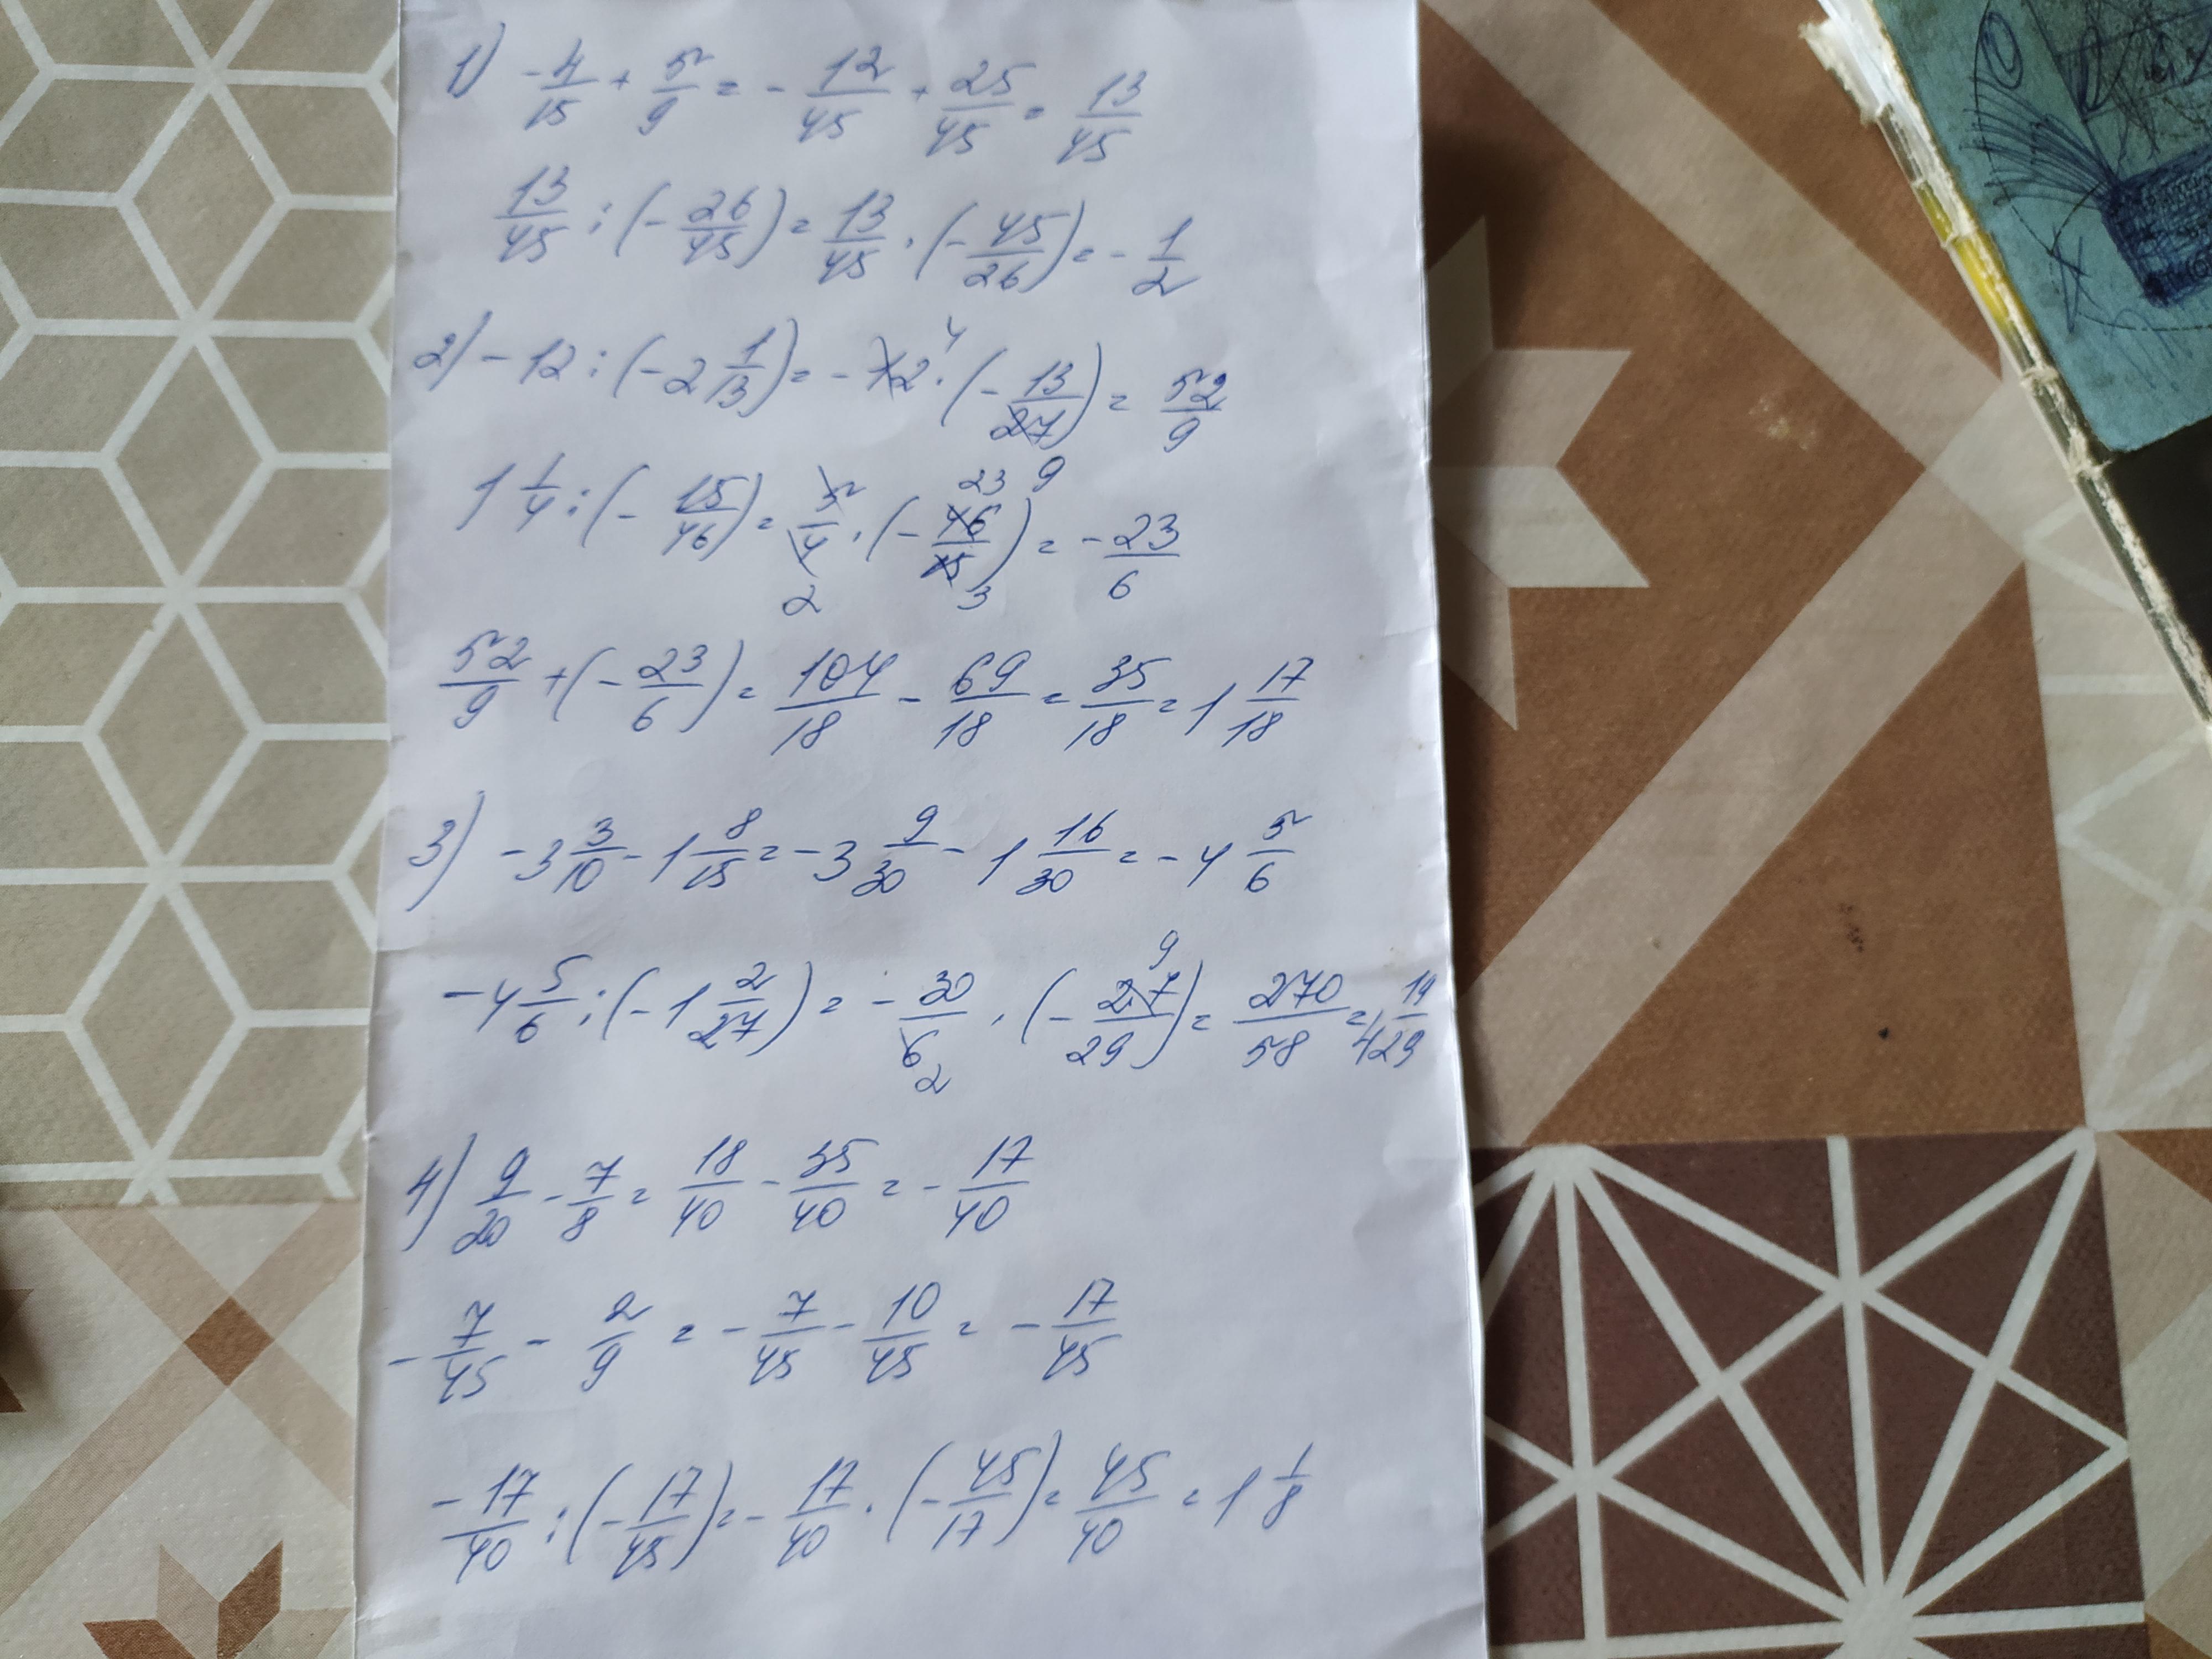 1) -4/15 + 5/9 = - 12/45 + 25/45 = 13/45
13/45 : (- 26/45) = 13/45 · (- 45/26) = - 1/2
2) - 12 : (-2 1/13) = - 12 4 · (- 13/27 9) = 52/9
1 1/4 : (- 15/46) = 5/4 2 · (- 46 23/15 3) = - 23/6
52/9 + (- 23/6) = 104/18 - 69/18 = 35/18 = 1 17/18
3) -3 3/10 - 1 8/15 = -3 9/30 - 1 16/30 = -4 5/6
-4 5/6 : (-1 2/27) = - 30/6 2 · (- 27 9/29) = 270/58 = 4 19/29
4) 9/20 - 7/8 = 18/40 - 35/40 = - 17/40
- 7/45 - 2/9 = - 7/45 - 10/45 = - 17/45
- 17/40 : (- 17/45) = - 17/40 · (- 45/17) = 45/40 = 1 1/8